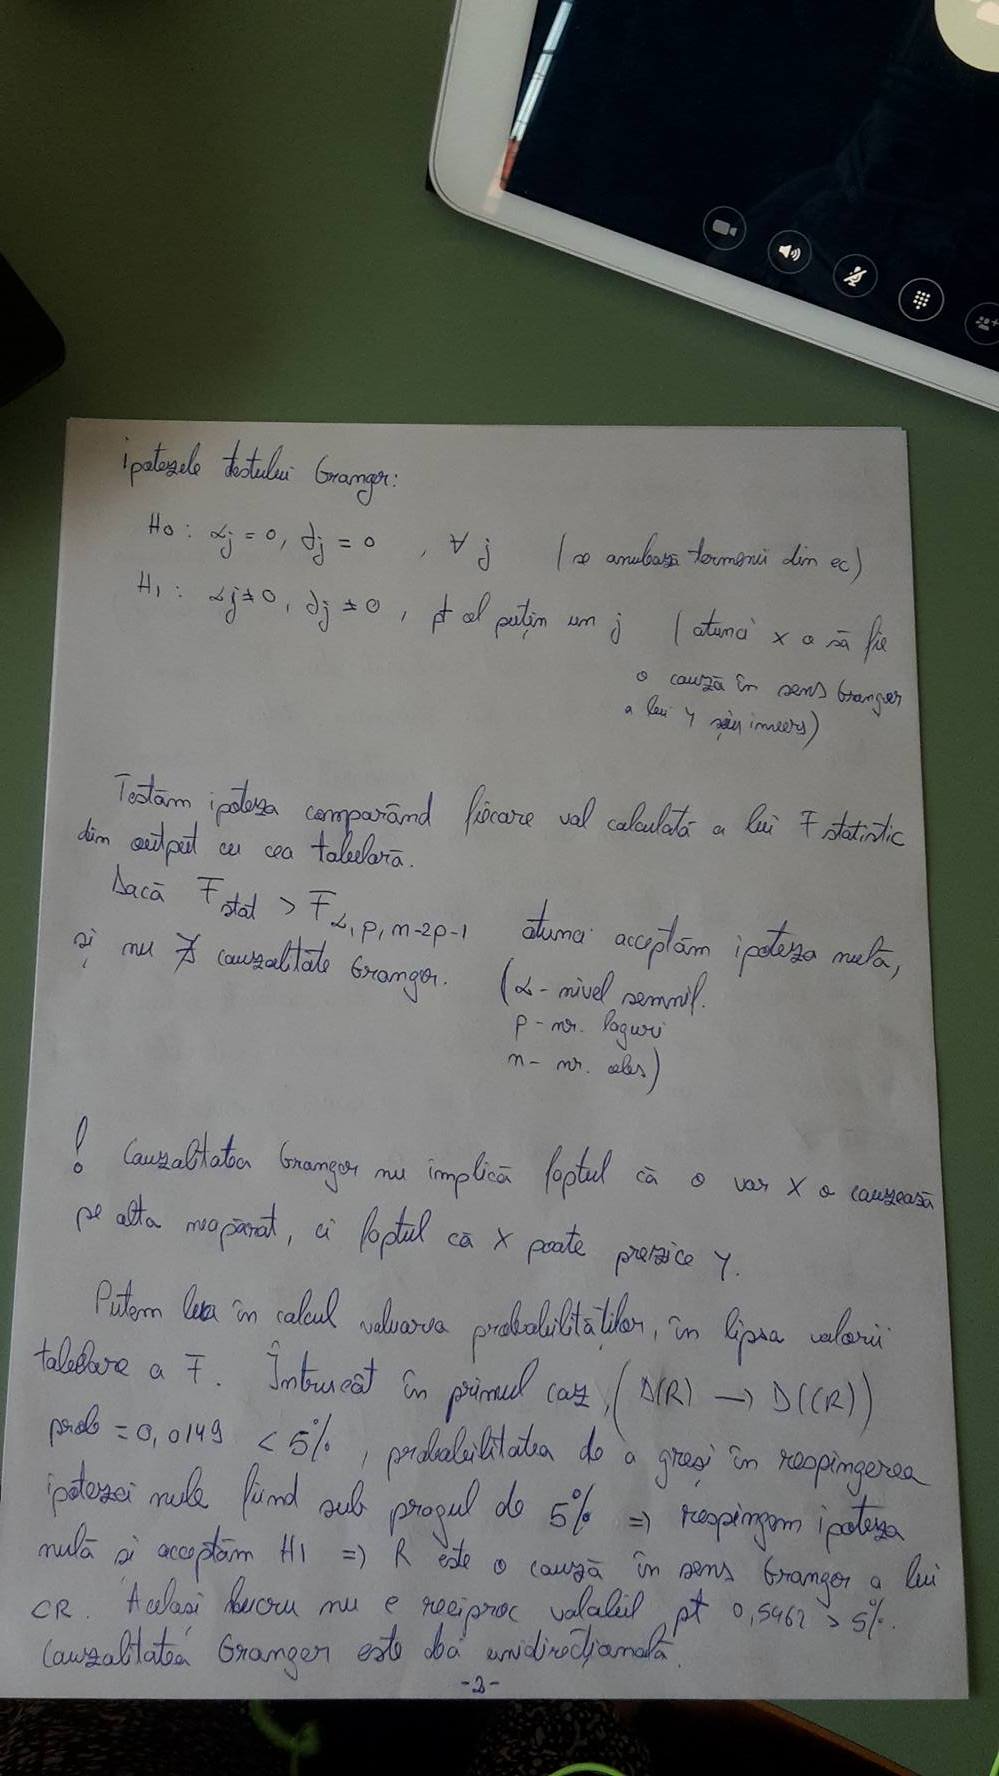 ipotezele testului Granger:
H0: αj = 0, δj = 0 , ∀ j (se anulează termenii din ec)
H1: αj ≠ 0, δj ≠ 0, pt cel puțin un j (atunci x o să fie
o cauză în sens Granger
a lui y sau invers)
Testăm ipoteza comparând fiecare val calculată a lui F statistic
din output cu cea tabelară.
Dacă F stat > F α, p, n-2p-1 atunci acceptăm ipoteza nulă,
și nu ∃ cauzalitate Granger.
(α - nivel semnif.
p - nr. laguri
n - nr. obs)
! Cauzalitatea Granger nu implică faptul că o var X o cauzează
pe alta neapărat, ci faptul că X poate prezice Y.
Putem lua în calcul valoarea probabilităților, în lipsa valorii
tabelare a F. Întrucât în primul caz, (D(R) → D(CR))
prob = 0,0149 < 5%, probabilitatea de a greși în respingerea
ipotezei nule fiind sub pragul de 5% => respingem ipoteza
nulă și acceptăm H1 => R este o cauză în sens Granger a lui
CR. Același lucru nu e reciproc valabil pt 0,5462 > 5%.
Cauzalitatea Granger este doar unidirecțională.
-2-